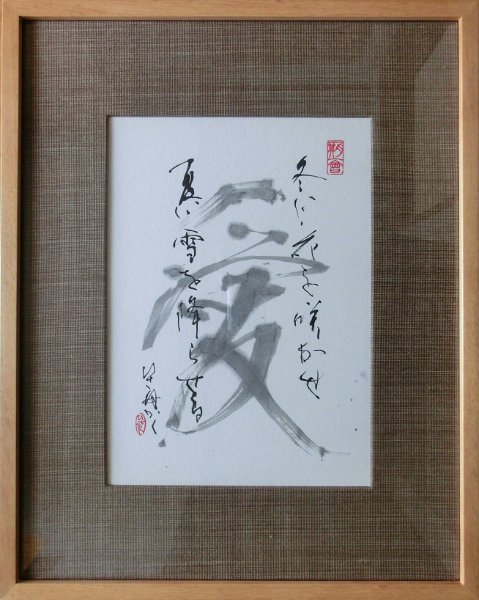 冬に花を咲かせ
夏に雪を降らせる
愛